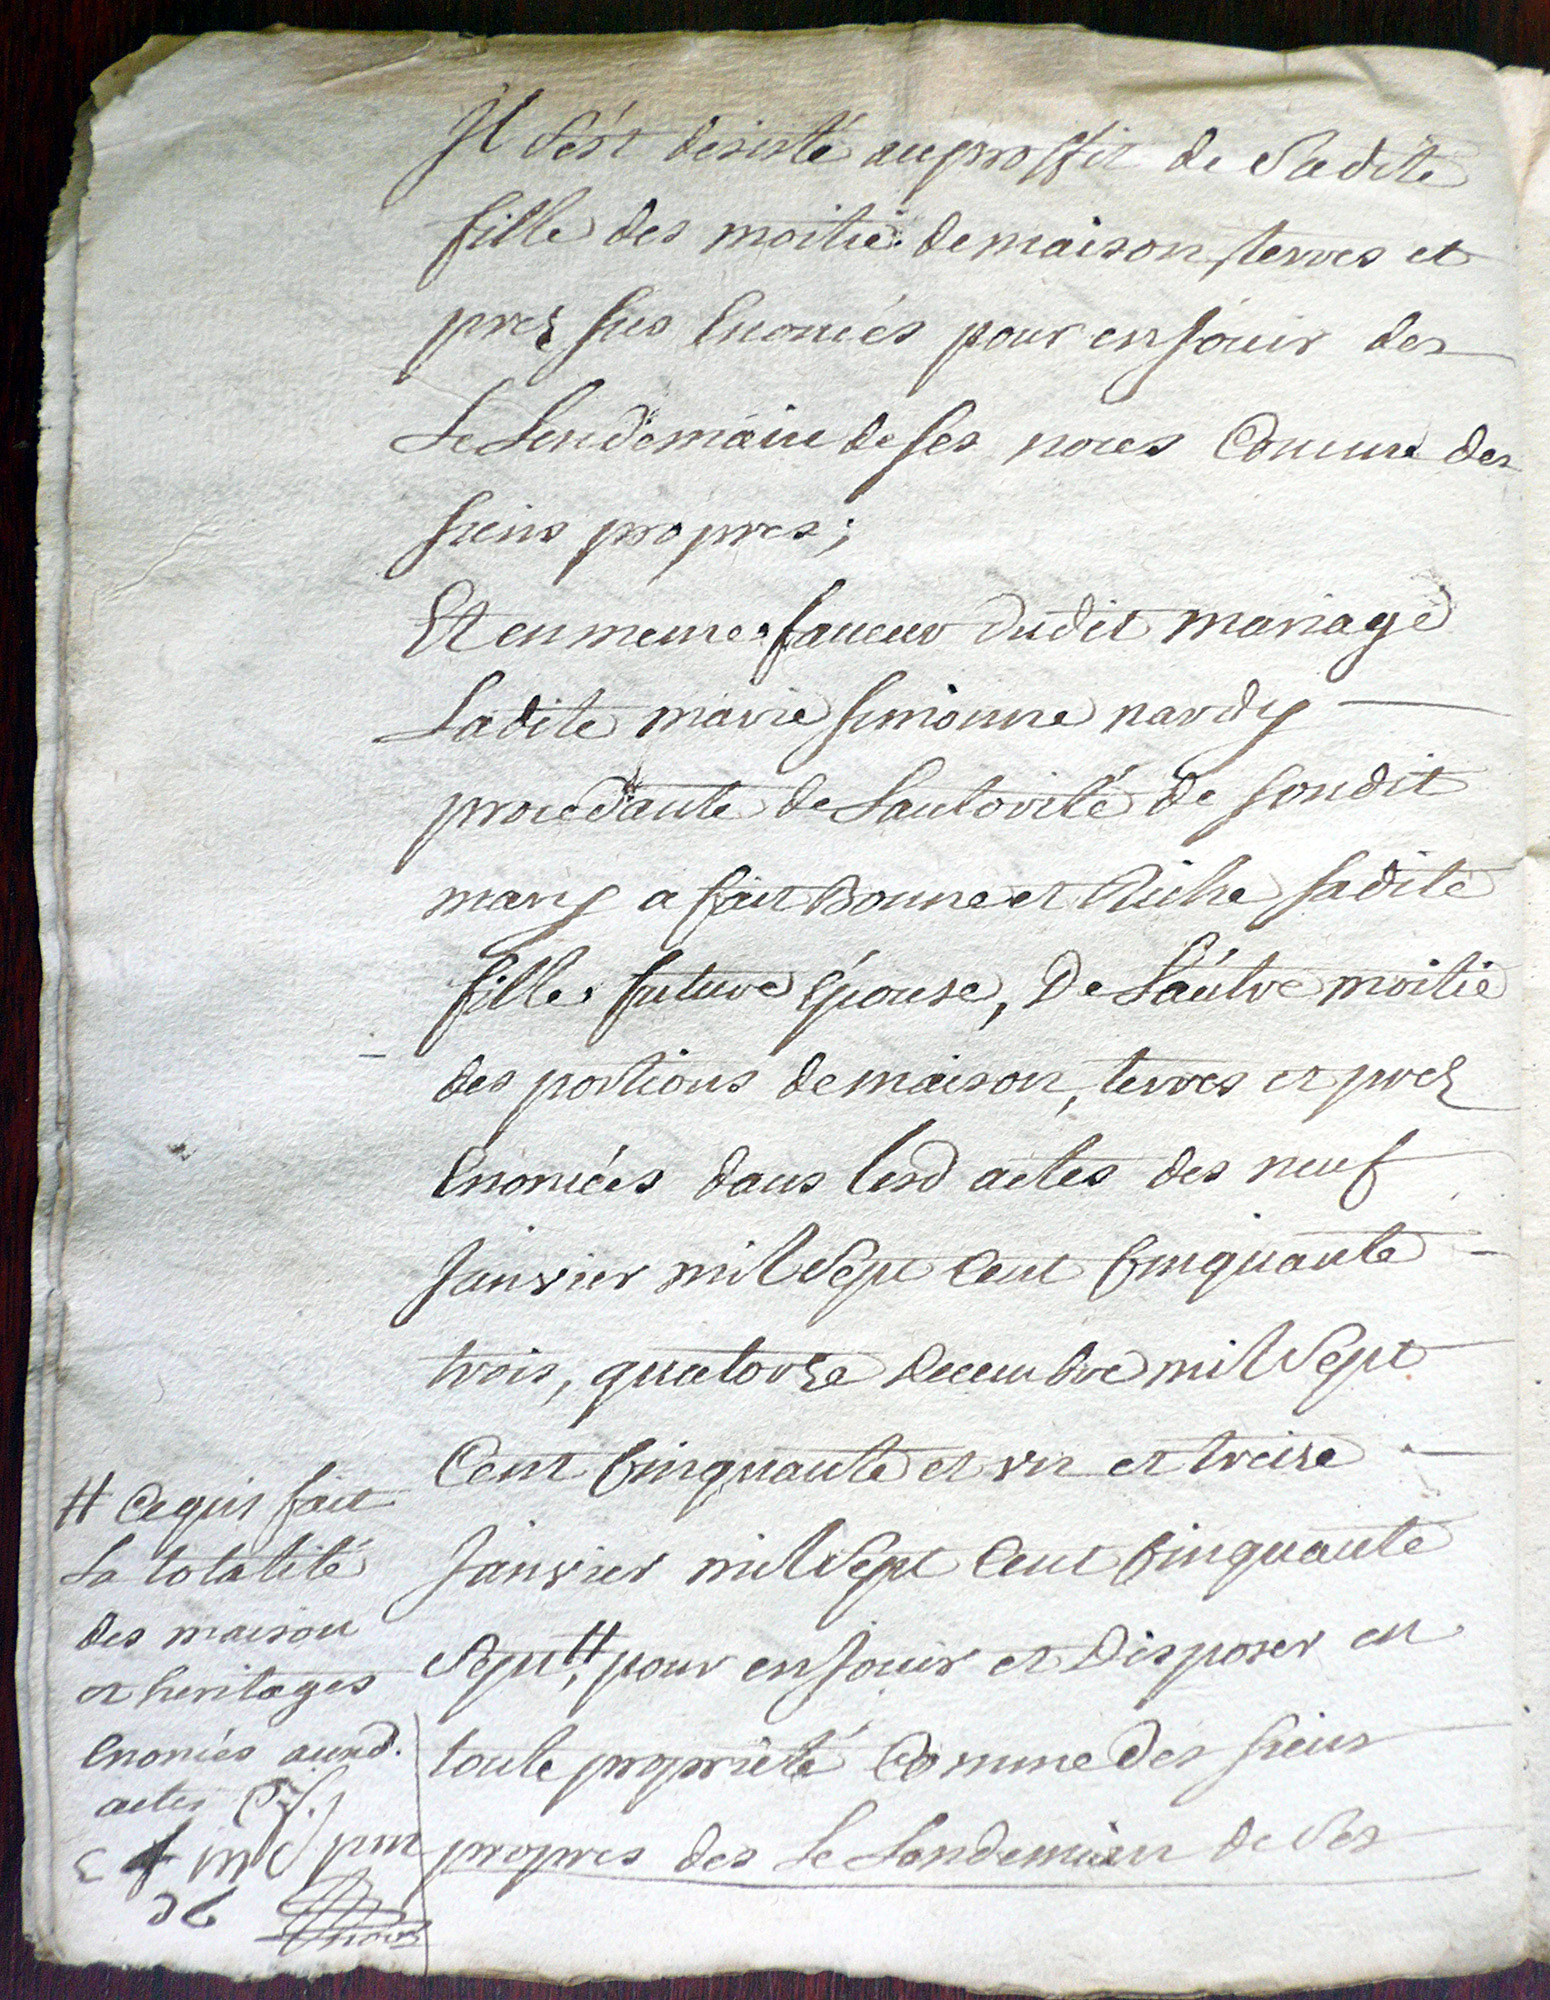 Il s'est desisté au proffit de sadite
fille des moitié de maison, terres et
prez sus Enoncés pour en jouir des
Le Lendemain de ses noces Comme des
siens propres;
Et en meme faveur dudit mariage
Ladite marie simonne nardy
procedante de Lautorité de sondit
mary a fait Bonne et Riche sadite
fille future Epouse, De L'autre moitié
des portions de maison, terres et prez
Enoncées dans lesd actes des neuf
Janvier mil Sept Cent Cinquante
trois, quatorze decembre mil Sept
Cent Cinquante et un et treize
Janvier mil Sept Cent Cinquante
Sept #, pour en jouir et Disposer en
toute propriété Comme des siens
propres des Le Landemain de Ses
# Ce qui fait
La totalité
des maison
et heritages
Enoncés auxd.
actes